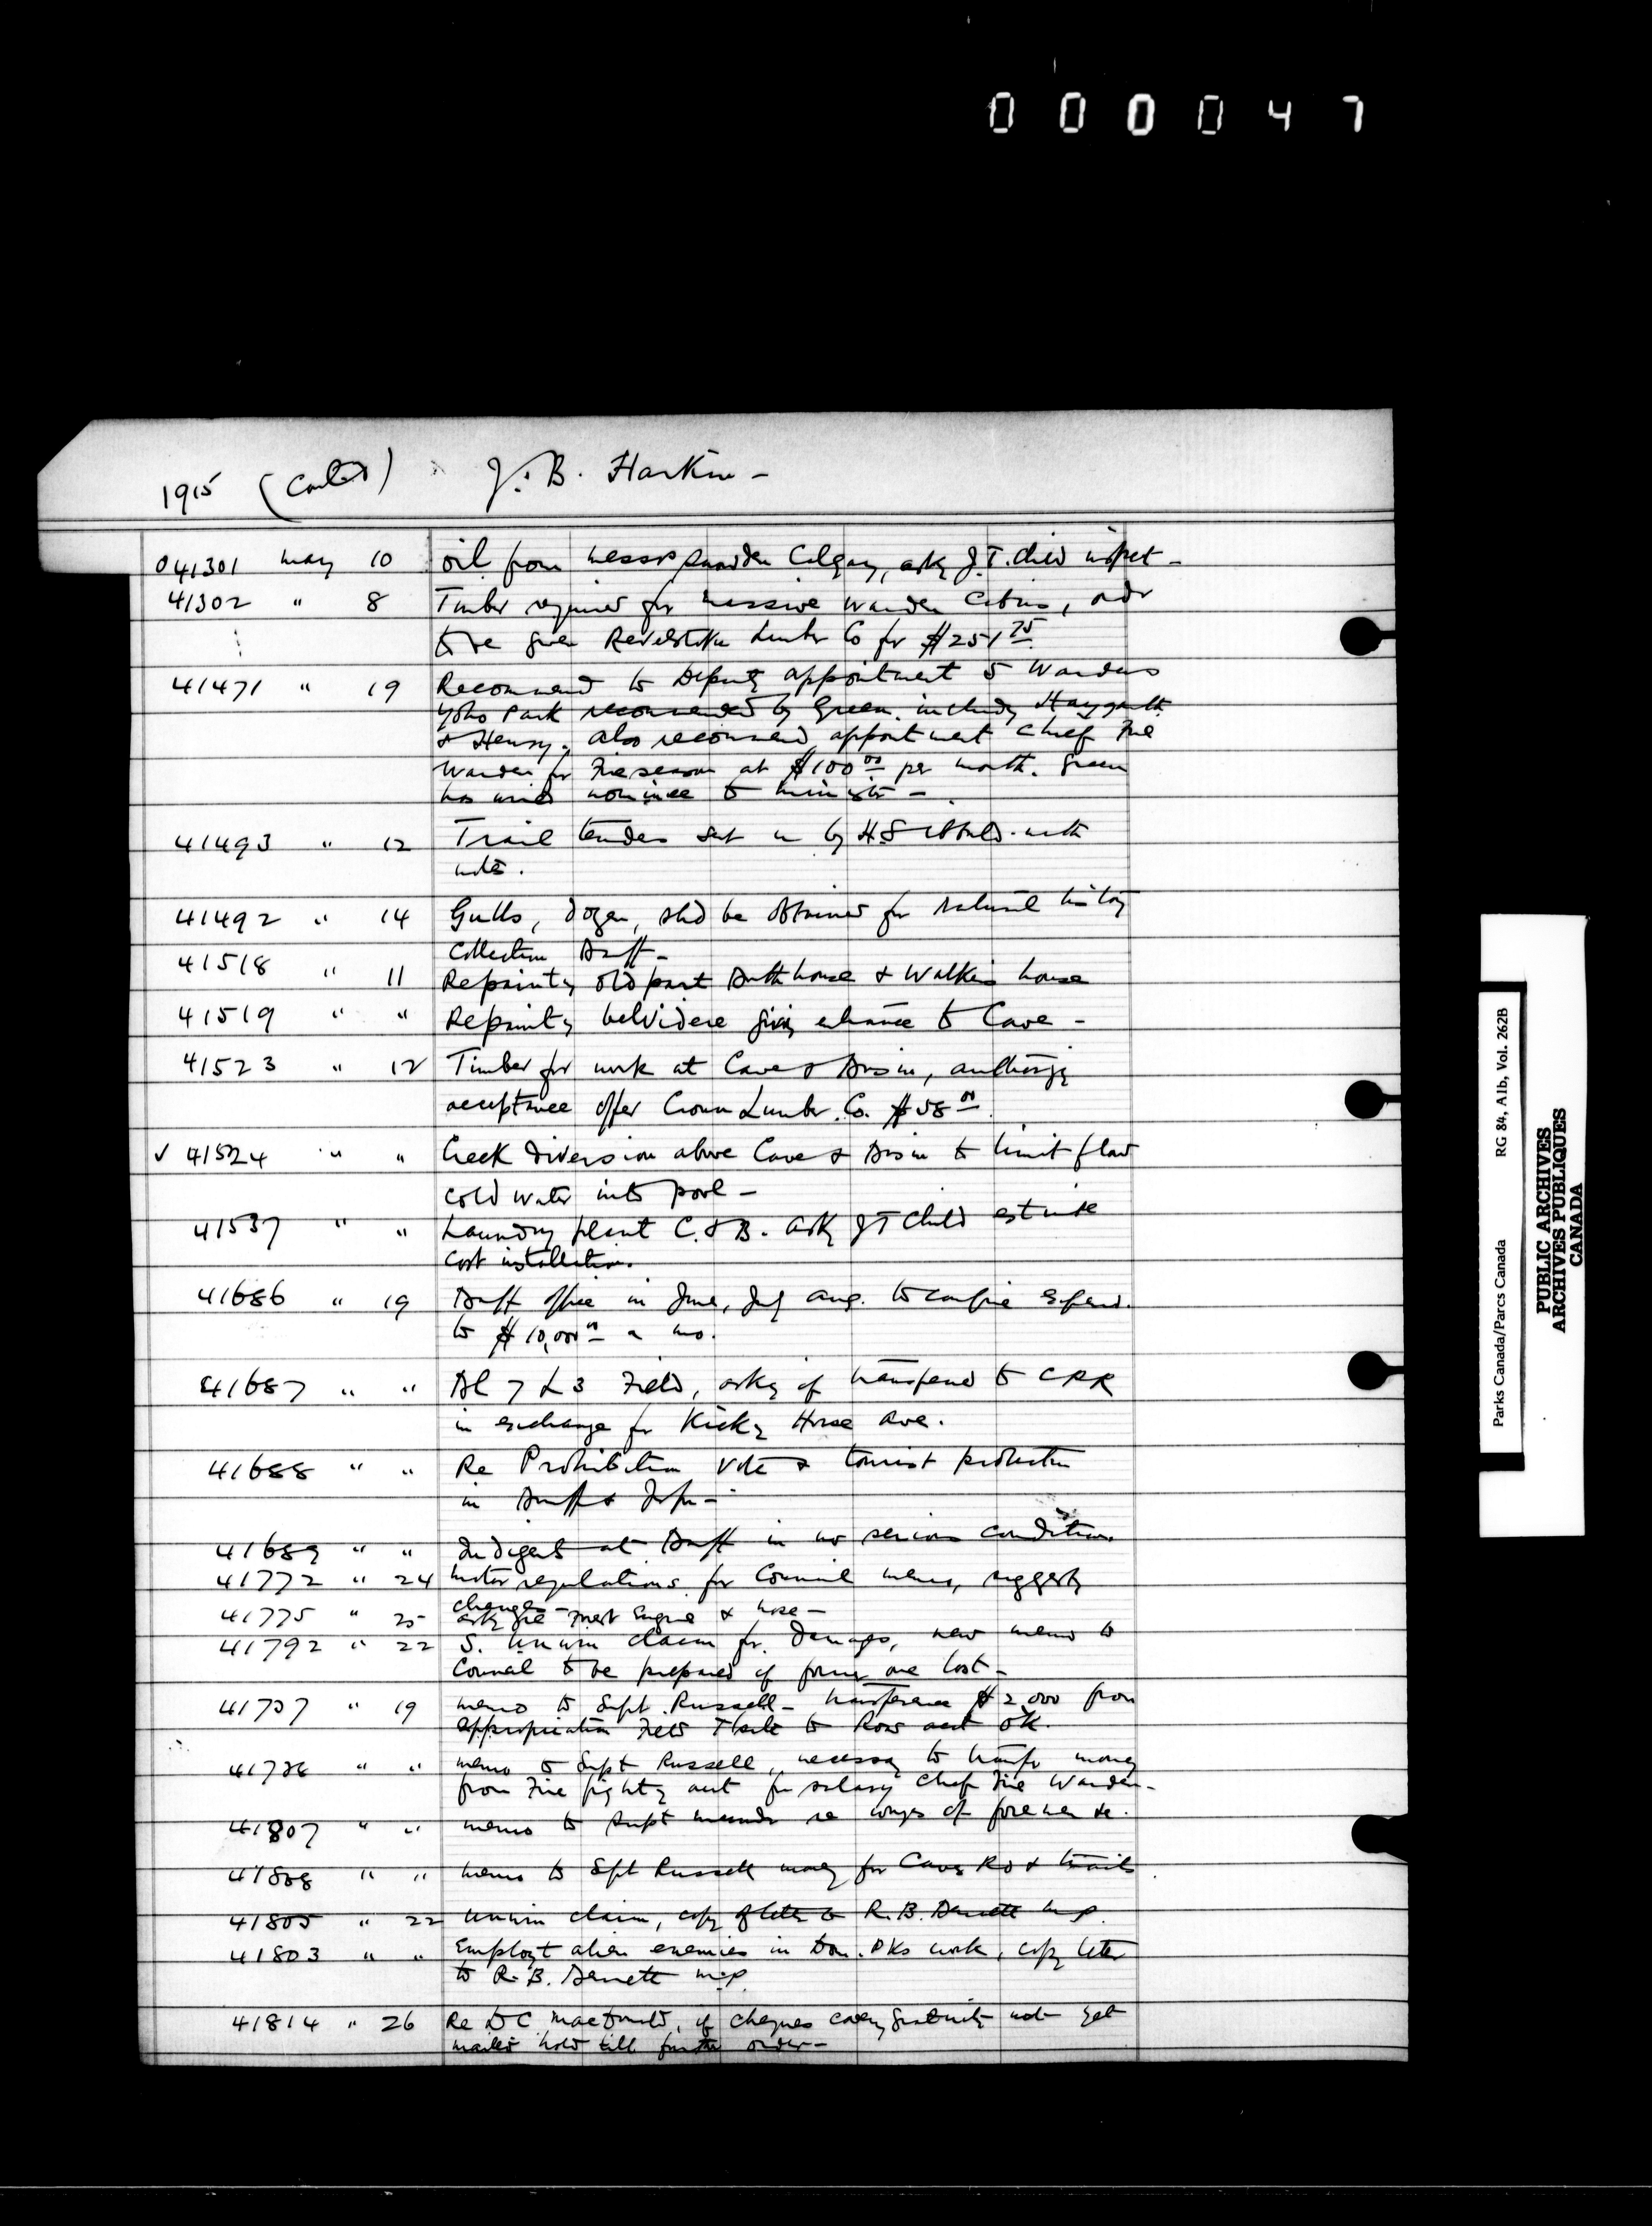 0 0 0 0 4 7
1915 (Contd) J.B. Harkin -
041301 May 10 oil from Messrs Calgary, askg J.T. Child
41302 " 8 Timber required for Massive Warden Cabins, order
to be given Revelstoke Lumber Co for $251 75
41471 " 19 Recommend to Deputy appointment 5 Wardens
Yoho Park recommended by Green including Haygarth
& Henry. also recommend appointment Chief Fire
Warden for Fire season at $100 00 per month. Green
has nominee to Minister -
41493 " 12 Trail tender sent in by H S with
note.
41492 " 14 Gulls, dozen, shd be obtained for Natural history
Collection Banff -
41518 " 11 Repainty old part Bathhouse & Walkers house
41519 " " Repainty belvidere givg entrance to Cave -
41523 " 12 Timber for work at Cave & Basin, authorizg
acceptance offer Crown Lumber Co. $58 00
✓ 41524 " " Creek diversion above Cave & Basin to limit flow
cold water into pool -
41537 " " Laundry plant C. & B. askg J T Child estimate
cost installation.
41686 " 19 Banff office in June, July Aug. to confine Expend.
to $10,000 00 a mo.
41687 " " Bl 7 L 3 Field, askg if transferred to CPR
in exchange for Kickg Horse Ave.
41688 " " Re Prohibition Vote & tourist protection
in Banff &
41689 " " Indigent at Banff in no serious condition.
41772 " 24 Motor regulations for Council memo, suggestg
changes -
41775 " 25 askg re Forest Engine & hose -
41792 " 22 S. Unwin claim for damages, new memo to
Council to be prepared if former one lost -
41737 " 19 memo to Supt Russell - transference $2,000 from
appropriation Field to Ross acct OK.
41736 " " memo to Supt Russell, necessary to transfer money
from Fire fightg acct for salary Chief Fire Warden -
41807 " " memo to Supt re wages of foremen &c.
41808 " " memo to Spt Russell money for Caves Rd & trails
41805 " 22 Unwin claim, copy of letter to R.B. Bennett M.P.
41803 " " Employt alien enemies in Dom. Pks work, copy letter
to R.B. Bennett M.P.
41814 " 26 Re D C MacDonald, if cheques coverg gratuity not yet
mailed hold till further order -
Parks Canada/Parcs Canada RG 84, A1b, Vol. 262B
PUBLIC ARCHIVES
ARCHIVES PUBLIQUES
CANADA